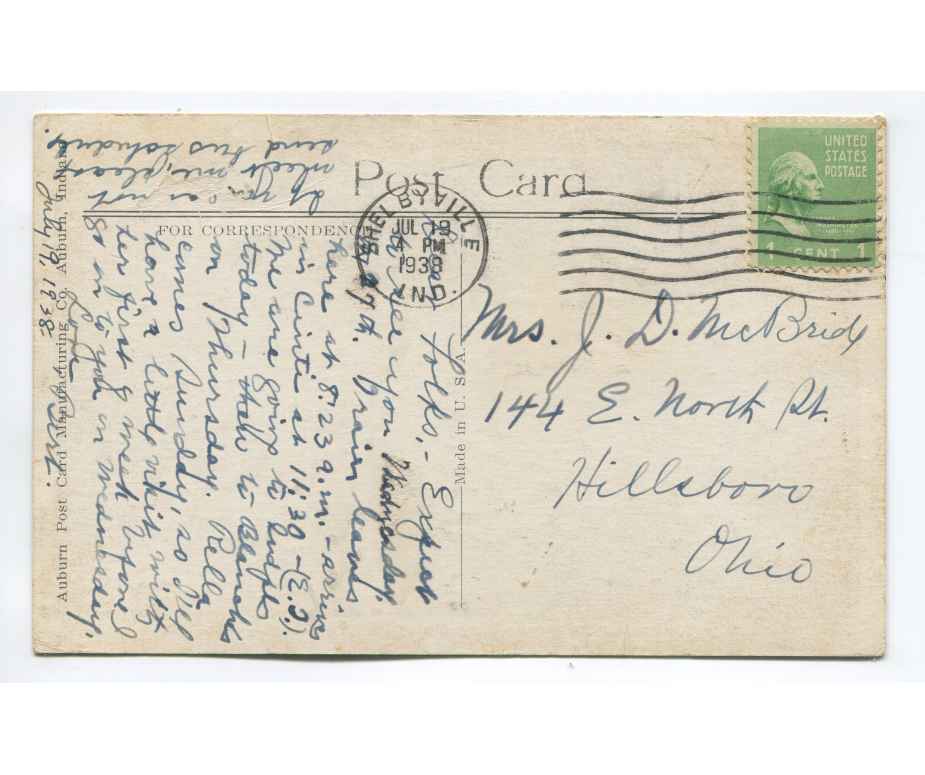 Post Card
FOR CORRESPONDENCE
SHELBYVILLE
JUL 19
4 PM
1938
IND.
UNITED
STATES
POSTAGE
WASHINGTON
1 CENT 1
Mrs. J. D. McBride
144 E. North St.
Hillsboro
Ohio
Made in U. S. A.
Auburn Post Card Manufacturing Co. Auburn, Indiana
July 19, 1938
folks,- Expect
to see you Wednesday
27th. leaves
here at 8:23 a.m. - arrives
in Cinti at 11:30 - (E.T.).
We are going to
today - to Blanche's
on Thursday. Rella
comes Sunday, so I'll
have a little visit with
her first of week before I
go on to you on Wednesday.
Love
If you can not
meet me, please
send bus schedule.